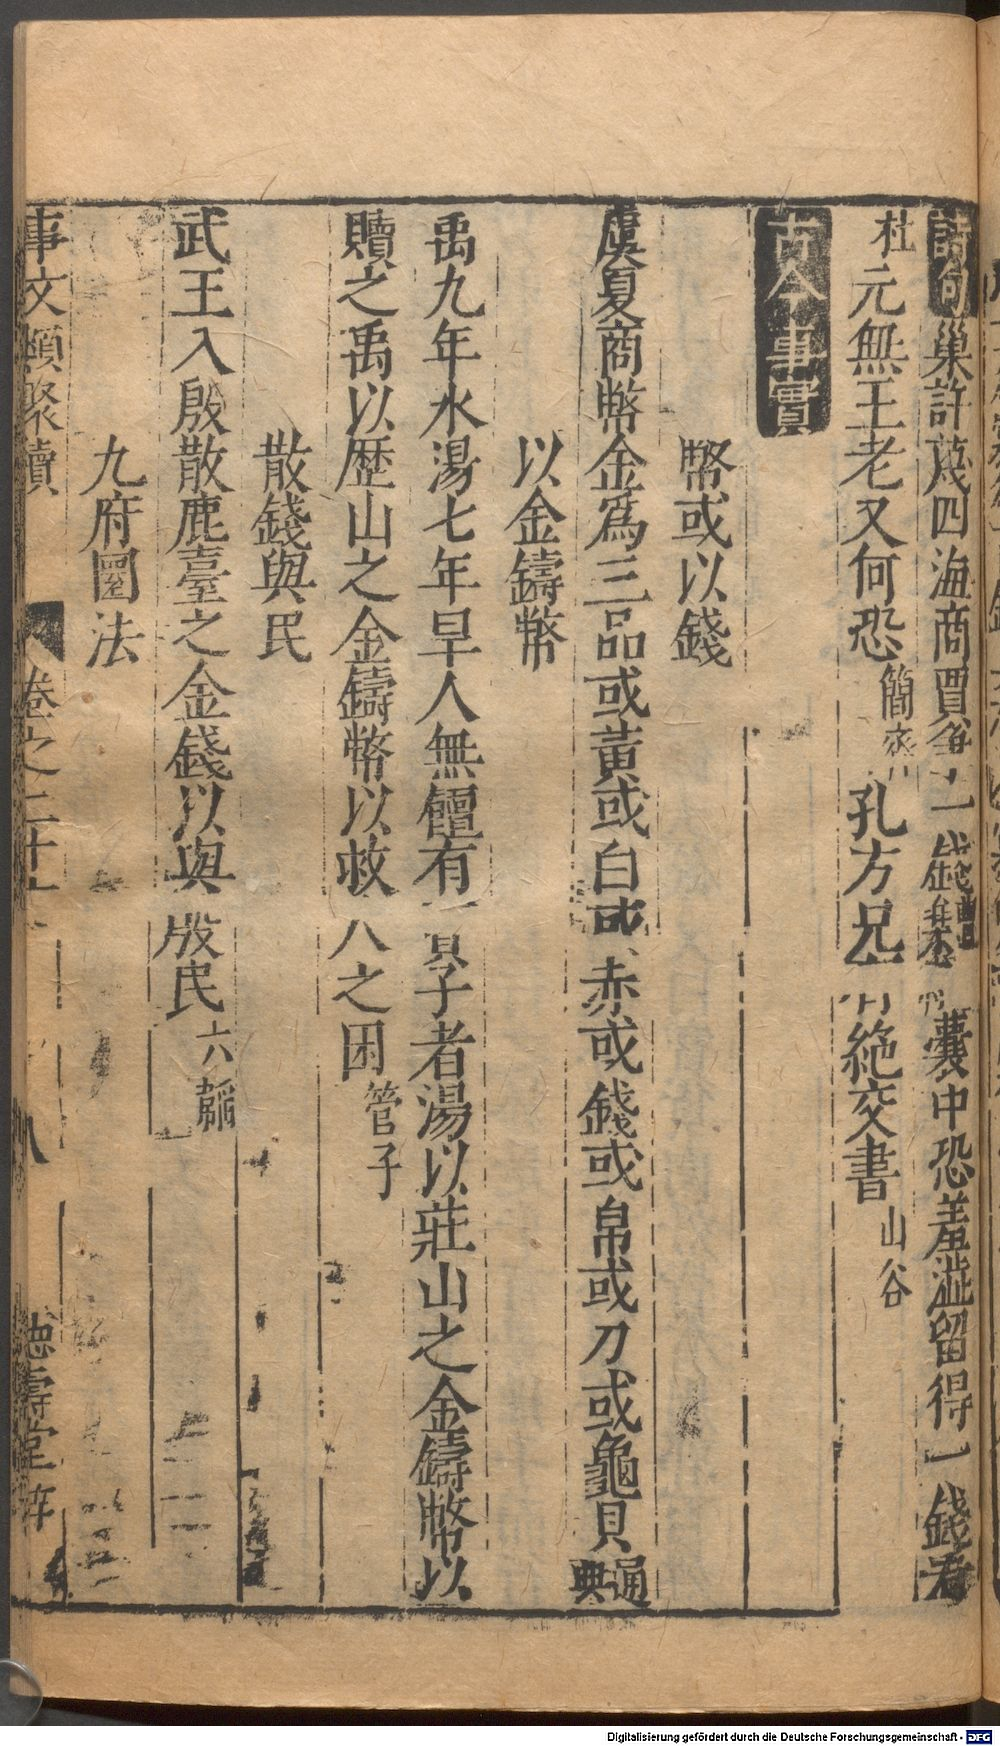 詩句巢許蔑四海商賈爭一錢集囊中恐羞澁留得一錢看
杜元無王老又何恐簡齋孔方兄有絶交書山谷
古今事實
幣或以錢
虞夏商幣金爲三品或黄或白或赤或錢或帛或刀或龜貝通典
以金鑄幣
禹九年水湯七年旱人無饘有賣子者湯以莊山之金鑄幣以
贖之禹以歷山之金鑄幣以救人之困管子
散錢與民
武王入殷散鹿臺之金錢以與殷民六韜
九府圜法
事文類聚續 卷之二十 八 德壽堂梓
Digitalisierung gefördert durch die Deutsche Forschungsgemeinschaft - DFG